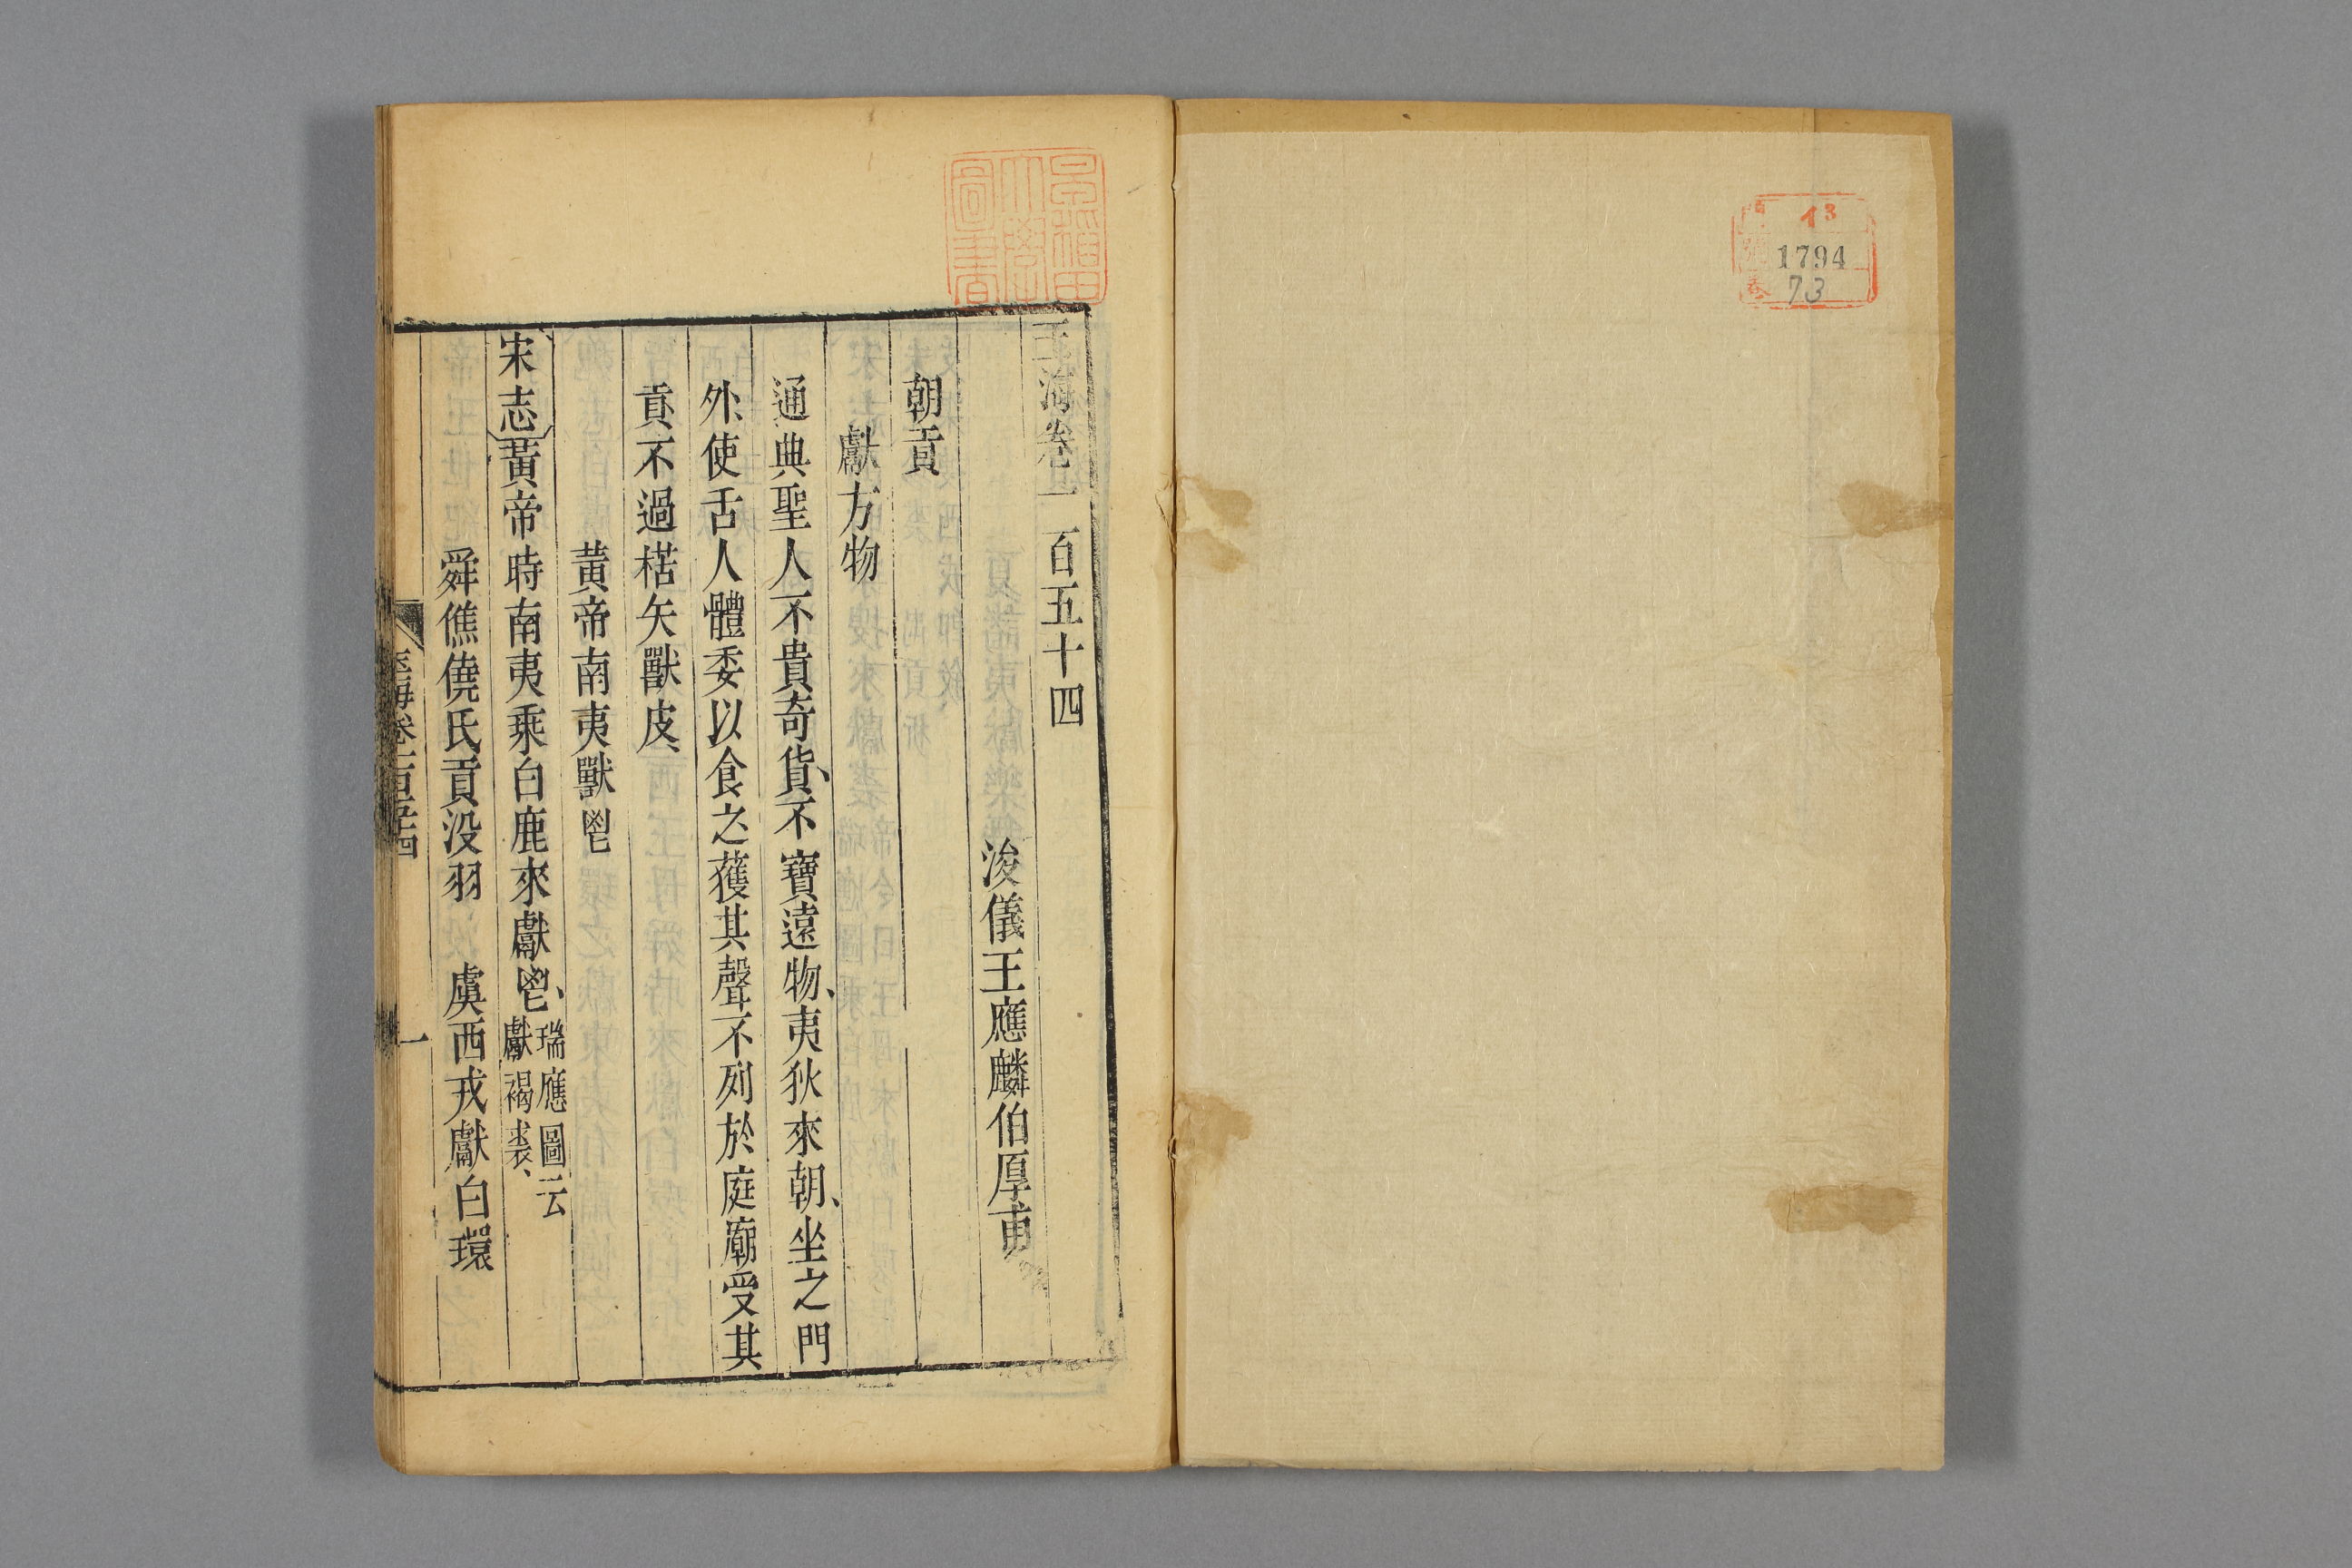 1794
73
早稲田大學圖書
玉海卷一百五十四
浚儀王應麟伯厚甫
朝貢
獻方物
通典聖人不貴奇貨、不寶遠物、夷狄來朝、坐之門
外、使舌人體委以食之獲其聲不列於庭廟受其
貢、不過楛矢獸皮、
黃帝南夷獸鬯
宋志黃帝時南夷乘白鹿來獻鬯、
瑞應圖云
獻褐裘、
舜僬僥氏貢没羽 虞西戎獻白環
玉海卷一百五十四
一